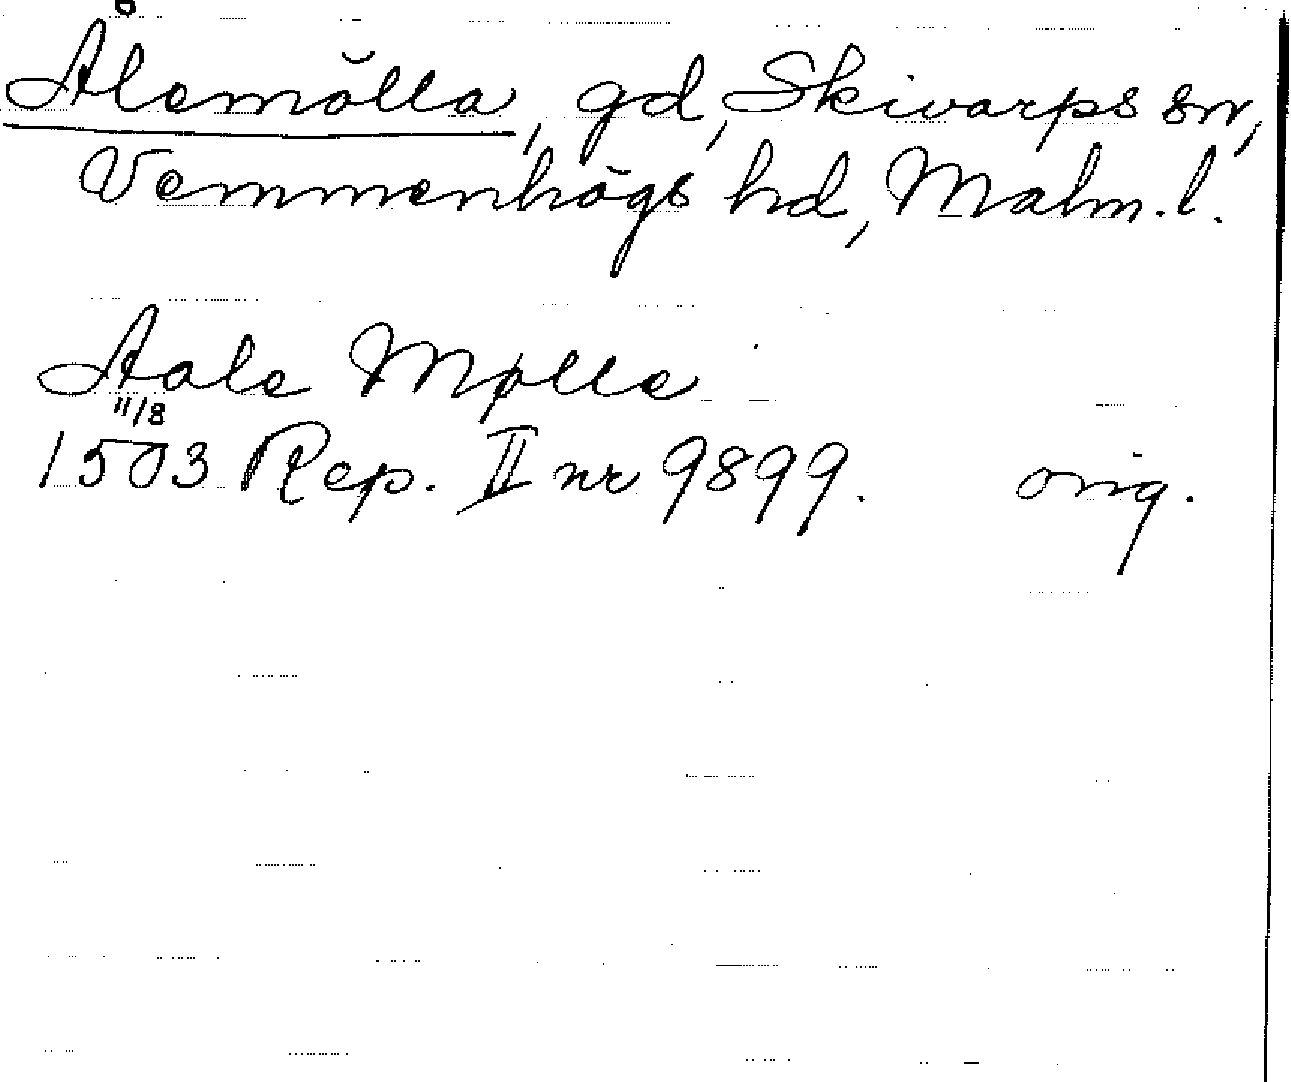 Ålemölla, gd, Skivarps sn,
Vemmenhögs hd, Malm. l.
Aale Mølle
11/8
1503 Rep. II nr 9899. orig.